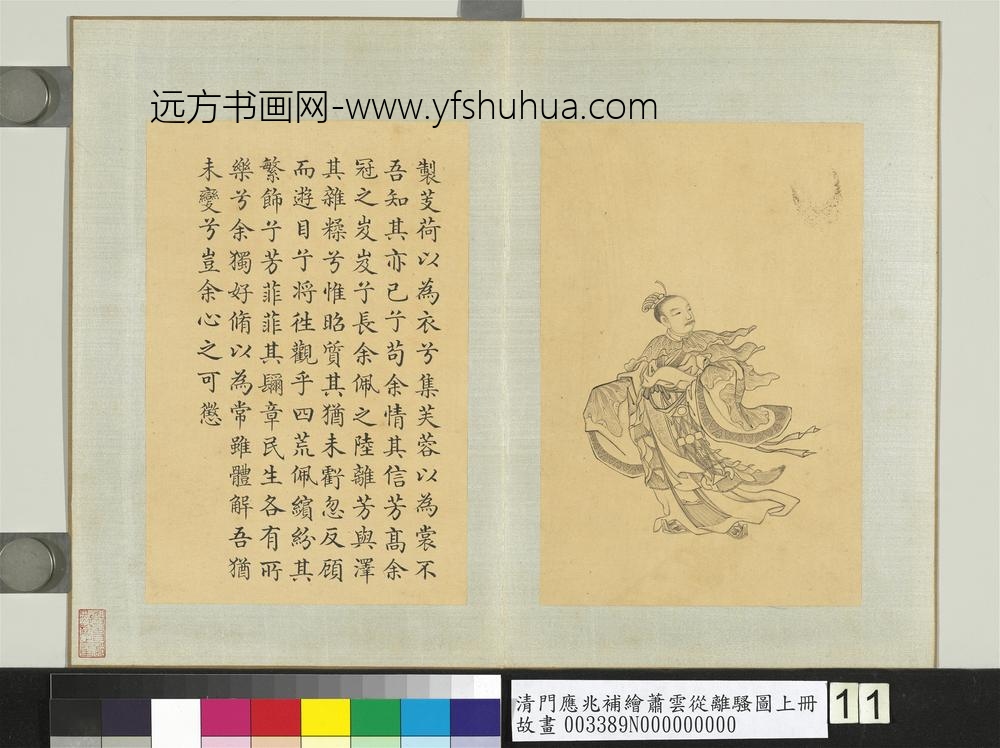 远方书画网-www.yfshuhua.com
製芰荷以為衣兮集芙蓉以為裳不
吾知其亦已兮苟余情其信芳髙余
冠之岌岌兮長余佩之陸離芳與澤
其雜糅兮惟昭質其猶未虧忽反顧
而遊目兮將徃觀乎四荒佩繽紛其
繁飾兮芳菲菲其彌章民生各有所
樂兮余獨好脩以為常雖體解吾猶
未變兮豈余心之可懲
清門應兆補繪蕭雲從離騷圖上冊
故畫 003389N000000000
11